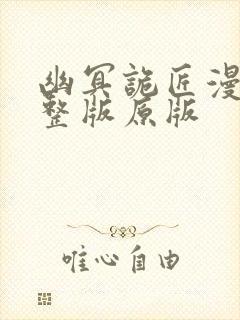 幽冥詭匠漫
整版原版
唯心自由